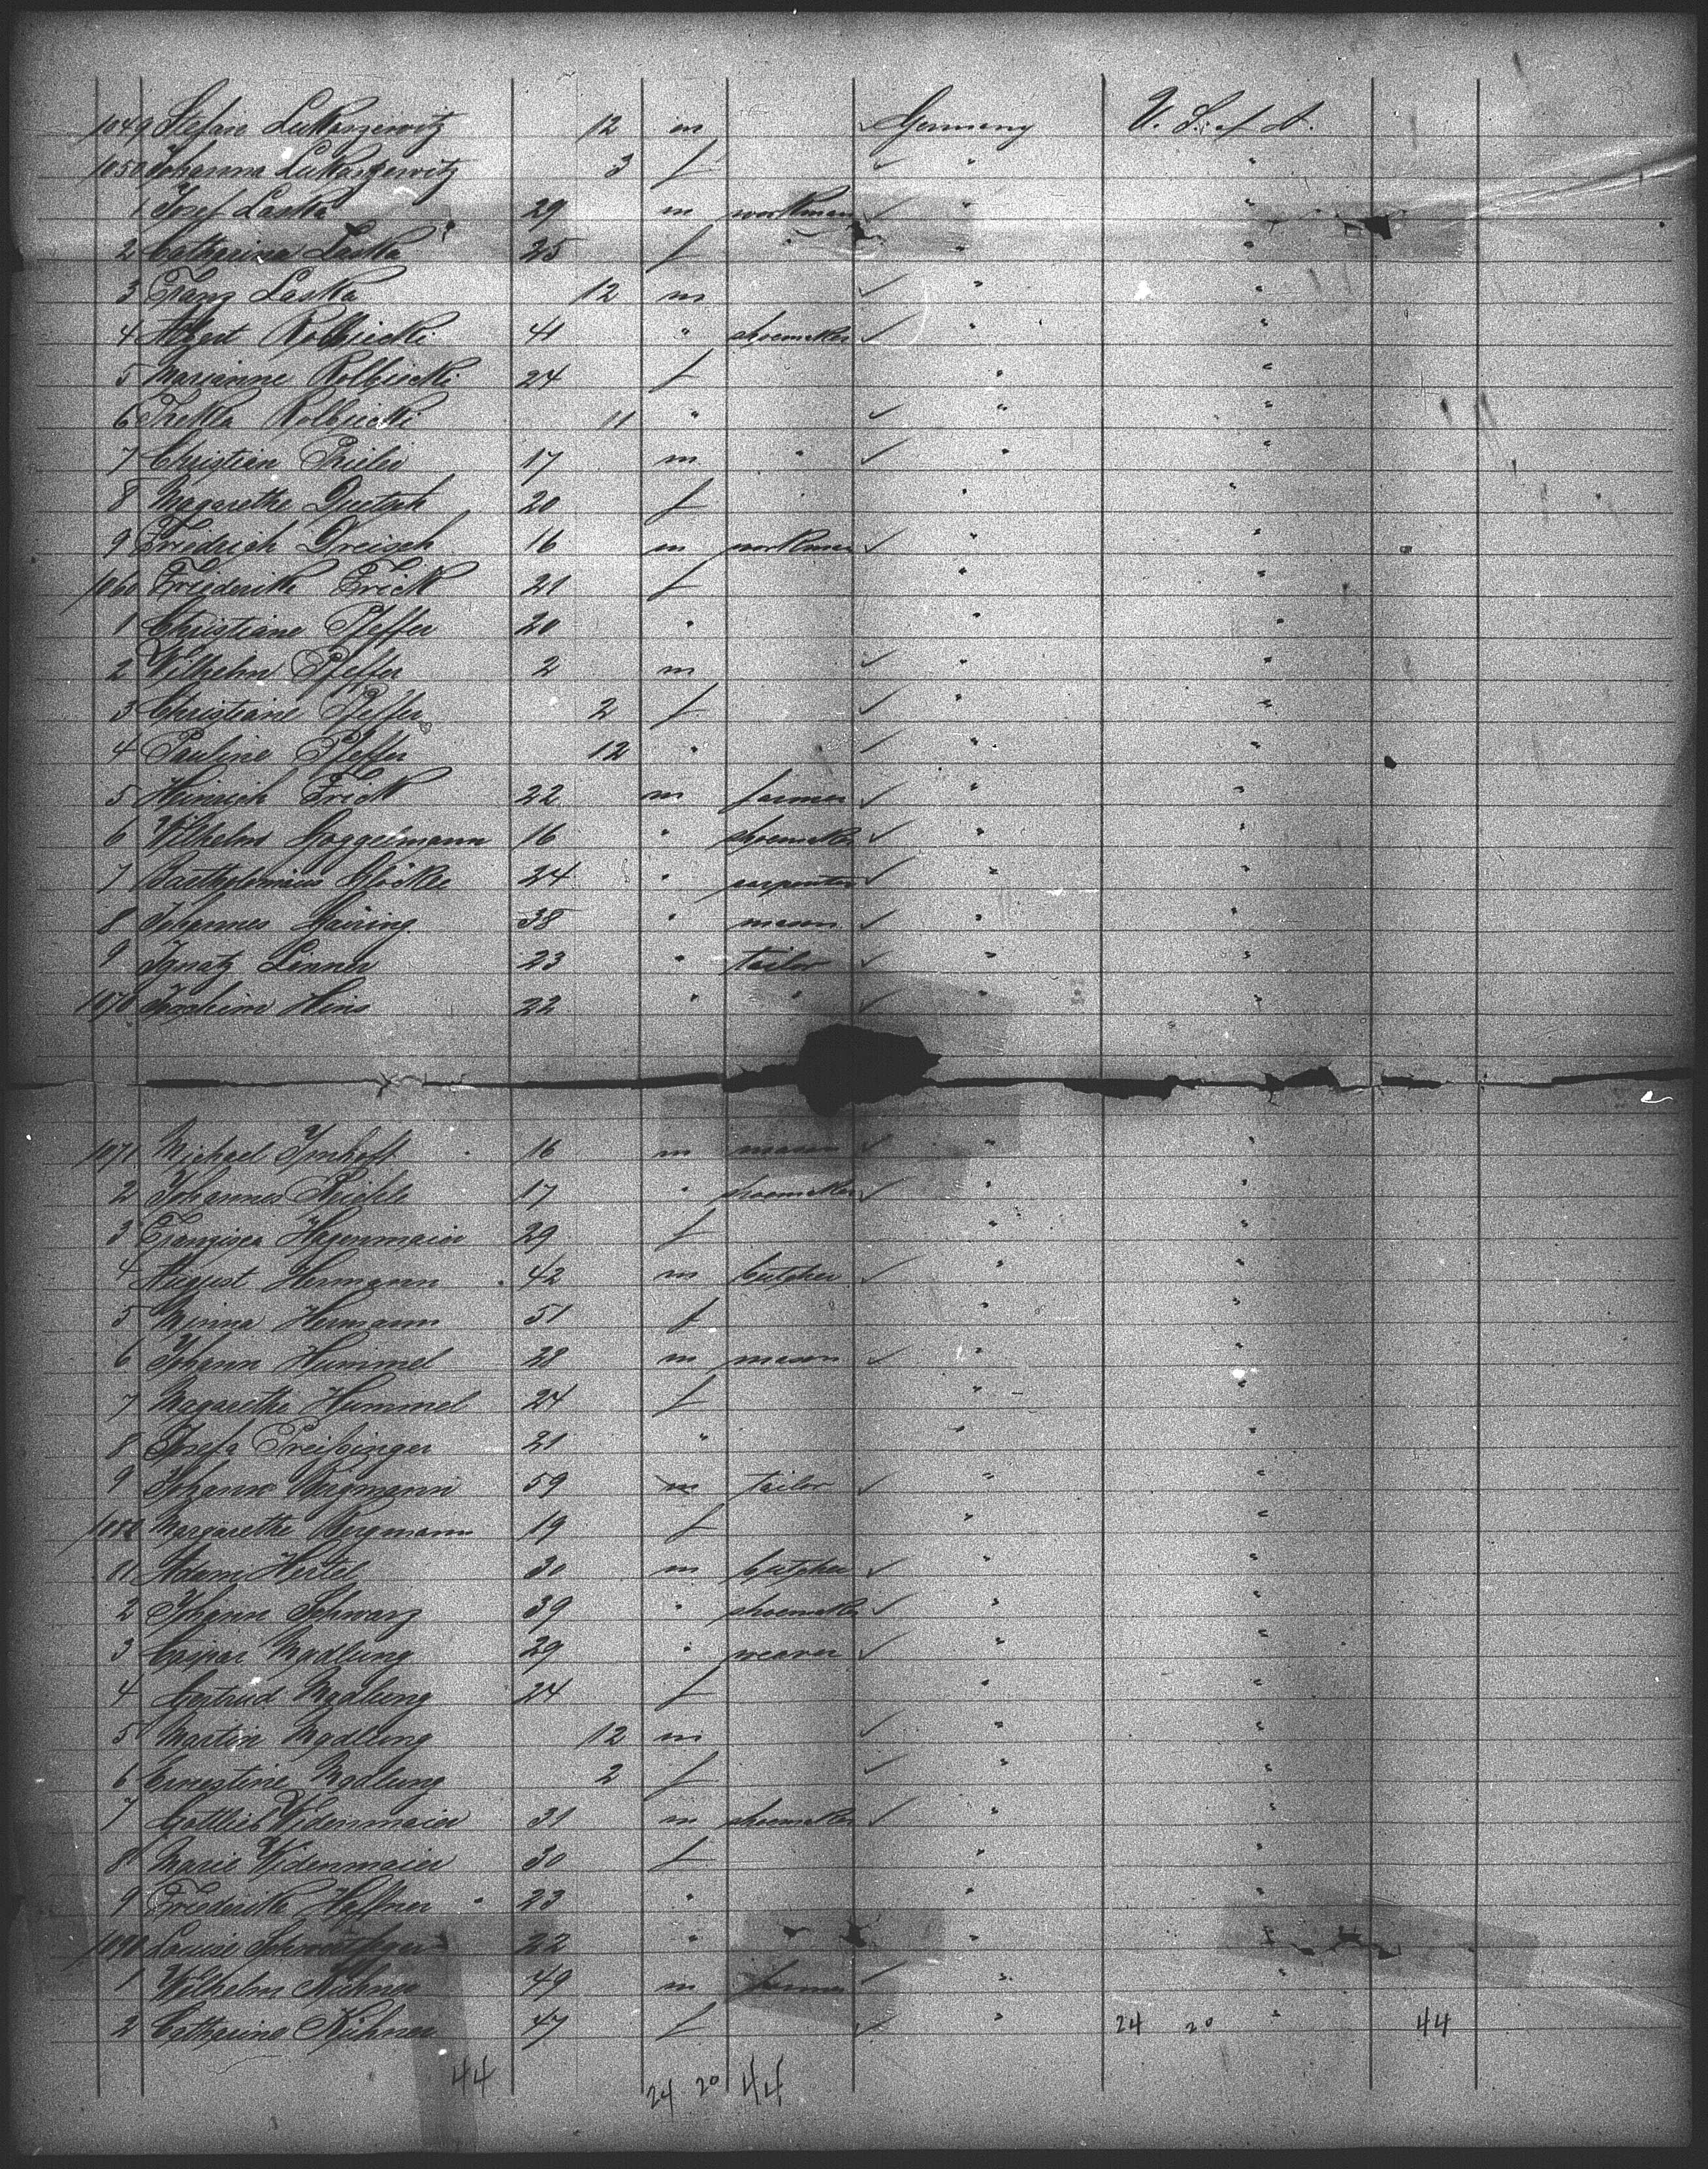 1049 Stefan Lukaszewitz 12 m Germany U. S. of A.
1050 Johanna Lukaszewitz 3 f " "
1 Josef Laska 29 m workman " "
2 Catharina Laska 25 f " "
3 Franz Laska 12 m " "
4 Albert Kolbiecki 41 " shoemaker " "
5 Marianne Kolbiecki 24 f " "
6 Thekla Kolbiecki 11 " " "
7 Christian 17 m " " "
8 Magarethe 20 f " "
9 Friedrich Dreisch 16 m workman " "
1060 Friederike Frick 21 f " "
1 Christiane Pfeffer 20 " "
2 Wilhelm Pfeffer 2 m " "
3 Christiane Pfeffer 2 f " "
4 Pauline Pfeffer 12 " " "
5 Heinrich Frick 22 m farmer " "
6 Wilhelm 16 " shoemaker " "
7 24 " carpenter " "
8 Johannes 38 " mason " "
9 Ignatz Linner 23 " tailor " "
1070 Joachim Hins 22 " " "
1071 Michael Imhoff 16 m mason " "
2 Johannes 17 " shoemaker " "
3 Franzisca Hagenmaier 29 f " "
4 August Hermann 42 m butcher " "
5 Minna Hermann 51 f " "
6 Johann Hummel 28 m mason " "
7 Magarethe Hummel 24 f " "
8 Josefa Preißinger 21 " " "
9 Johann Bergmann 59 m tailor " "
1080 Margarethe Bergmann 19 f " "
81 Adam Hertel 30 m butcher " "
2 Johann Schwarz 39 " shoemaker " "
3 Caspar Madlung 29 " weaver " "
4 Gertrud Madlung 24 f "
5 Martin Madlung 12 m " "
6 Ernestine Madlung 2 f " "
7 Gottlieb Widenmaier 31 m shoemaker " "
8 Marie Widenmaier 30 f " "
9 Friederike Haffner 23 " " "
1090 Louise 22 " "
1 Wilhelm Kühner 49 m farmer " "
2 Catharine Kühner 47 f " " 24 20 44
44 24 20 44